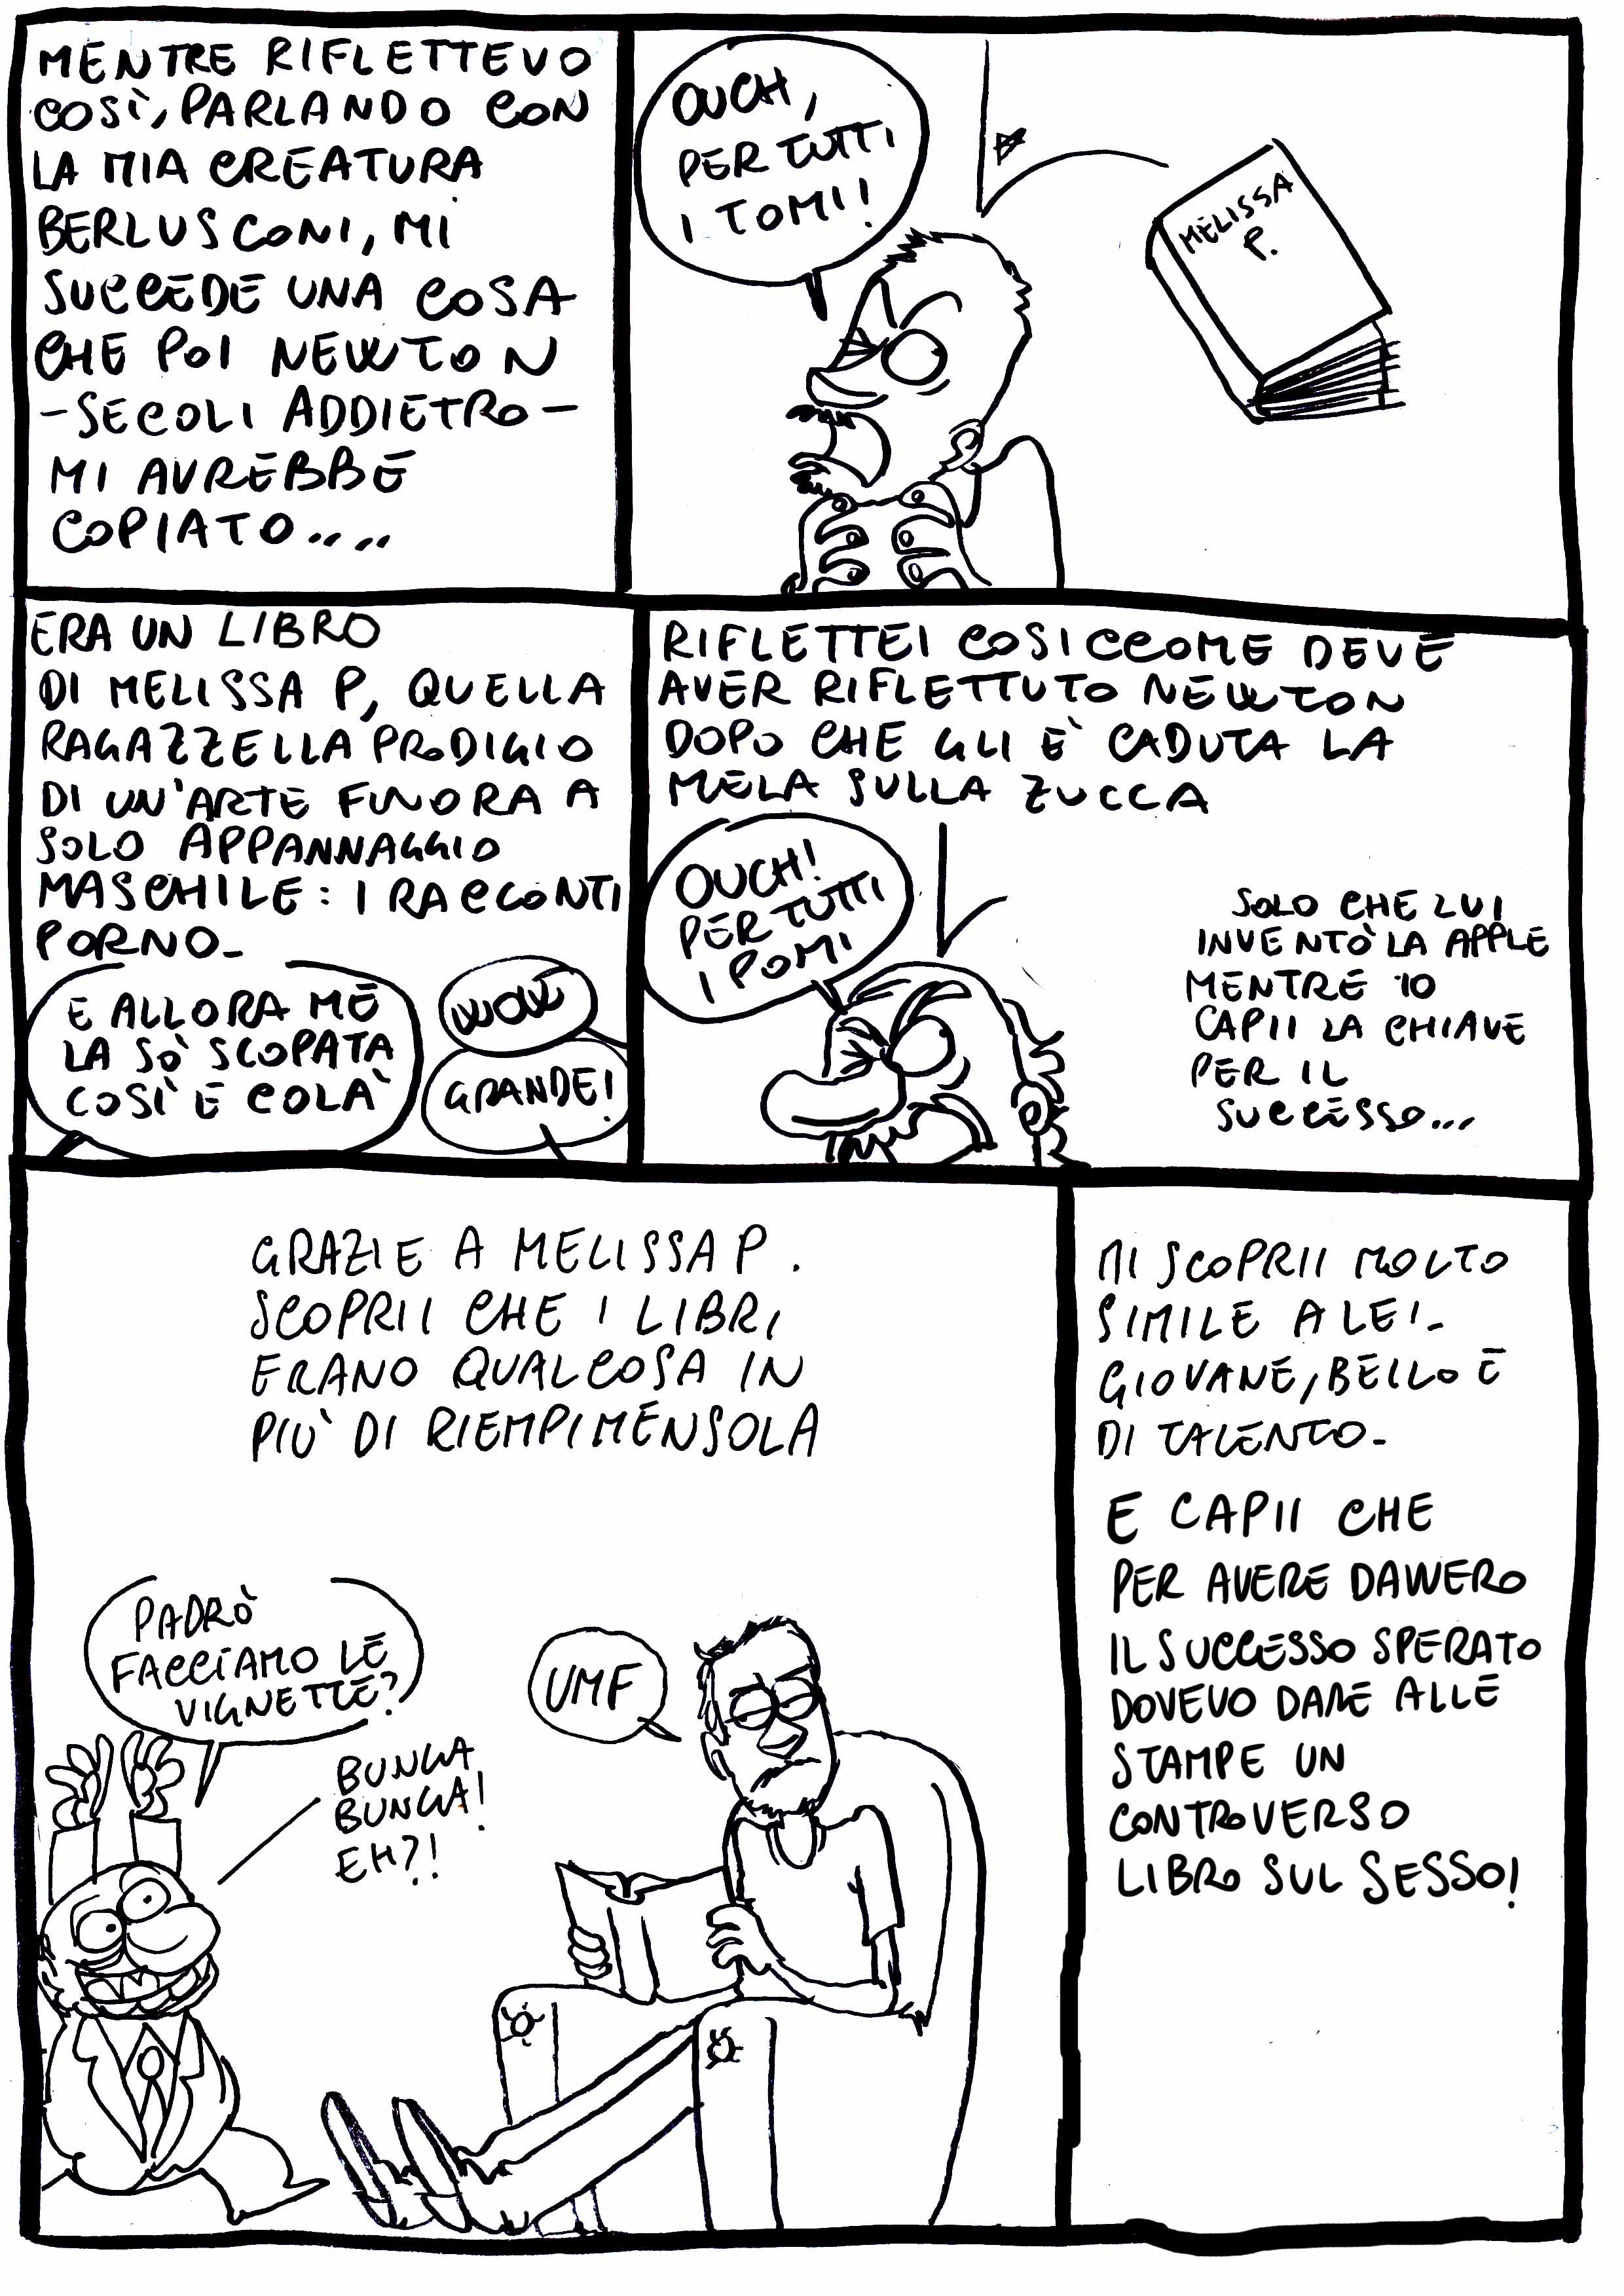 MENTRE RIFLETTEVO
COSÌ, PARLANDO CON
LA MIA CREATURA
BERLUSCONI, MI
SUCCEDE UNA COSA
CHE POI NEWTON
-SECOLI ADDIETRO-
MI AVREBBE
COPIATO....
OUCH,
PER TUTTI
I TOMI!
MELISSA
P.
ERA UN LIBRO
DI MELISSA P, QUELLA
RAGAZZELLA PRODIGIO
DI UN'ARTE FINORA A
SOLO APPANNAGGIO
MASCHILE: I RACCONTI
PORNO_
E ALLORA ME
LA SÒ SCOPATA
COSÌ E COLÀ
GRANDE!
RIFLETTEI COSICCOME DEVE
AVER RIFLETTUTO NEWTON
DOPO CHE GLI È CADUTA LA
MELA SULLA ZUCCA
OUCH!
PER TUTTI
I POMI
SOLO CHE LUI
INVENTÒ LA APPLE
MENTRE IO
CAPII LA CHIAVE
PER IL
SUCCESSO...
GRAZIE A MELISSA P.
SCOPRII CHE I LIBRI
ERANO QUALCOSA IN
PIÙ DI RIEMPIMENSOLA
PADRÒ
FACCIAMO LE
VIGNETTE?
BUNGA
BUNGA!
EH?!
UMF
MI SCOPRII MOLTO
SIMILE A LEI_
GIOVANE, BELLO E
DI TALENTO_
E CAPII CHE
PER AVERE DAVVERO
IL SUCCESSO SPERATO
DOVEVO DARE ALLE
STAMPE UN
CONTROVERSO
LIBRO SUL SESSO!